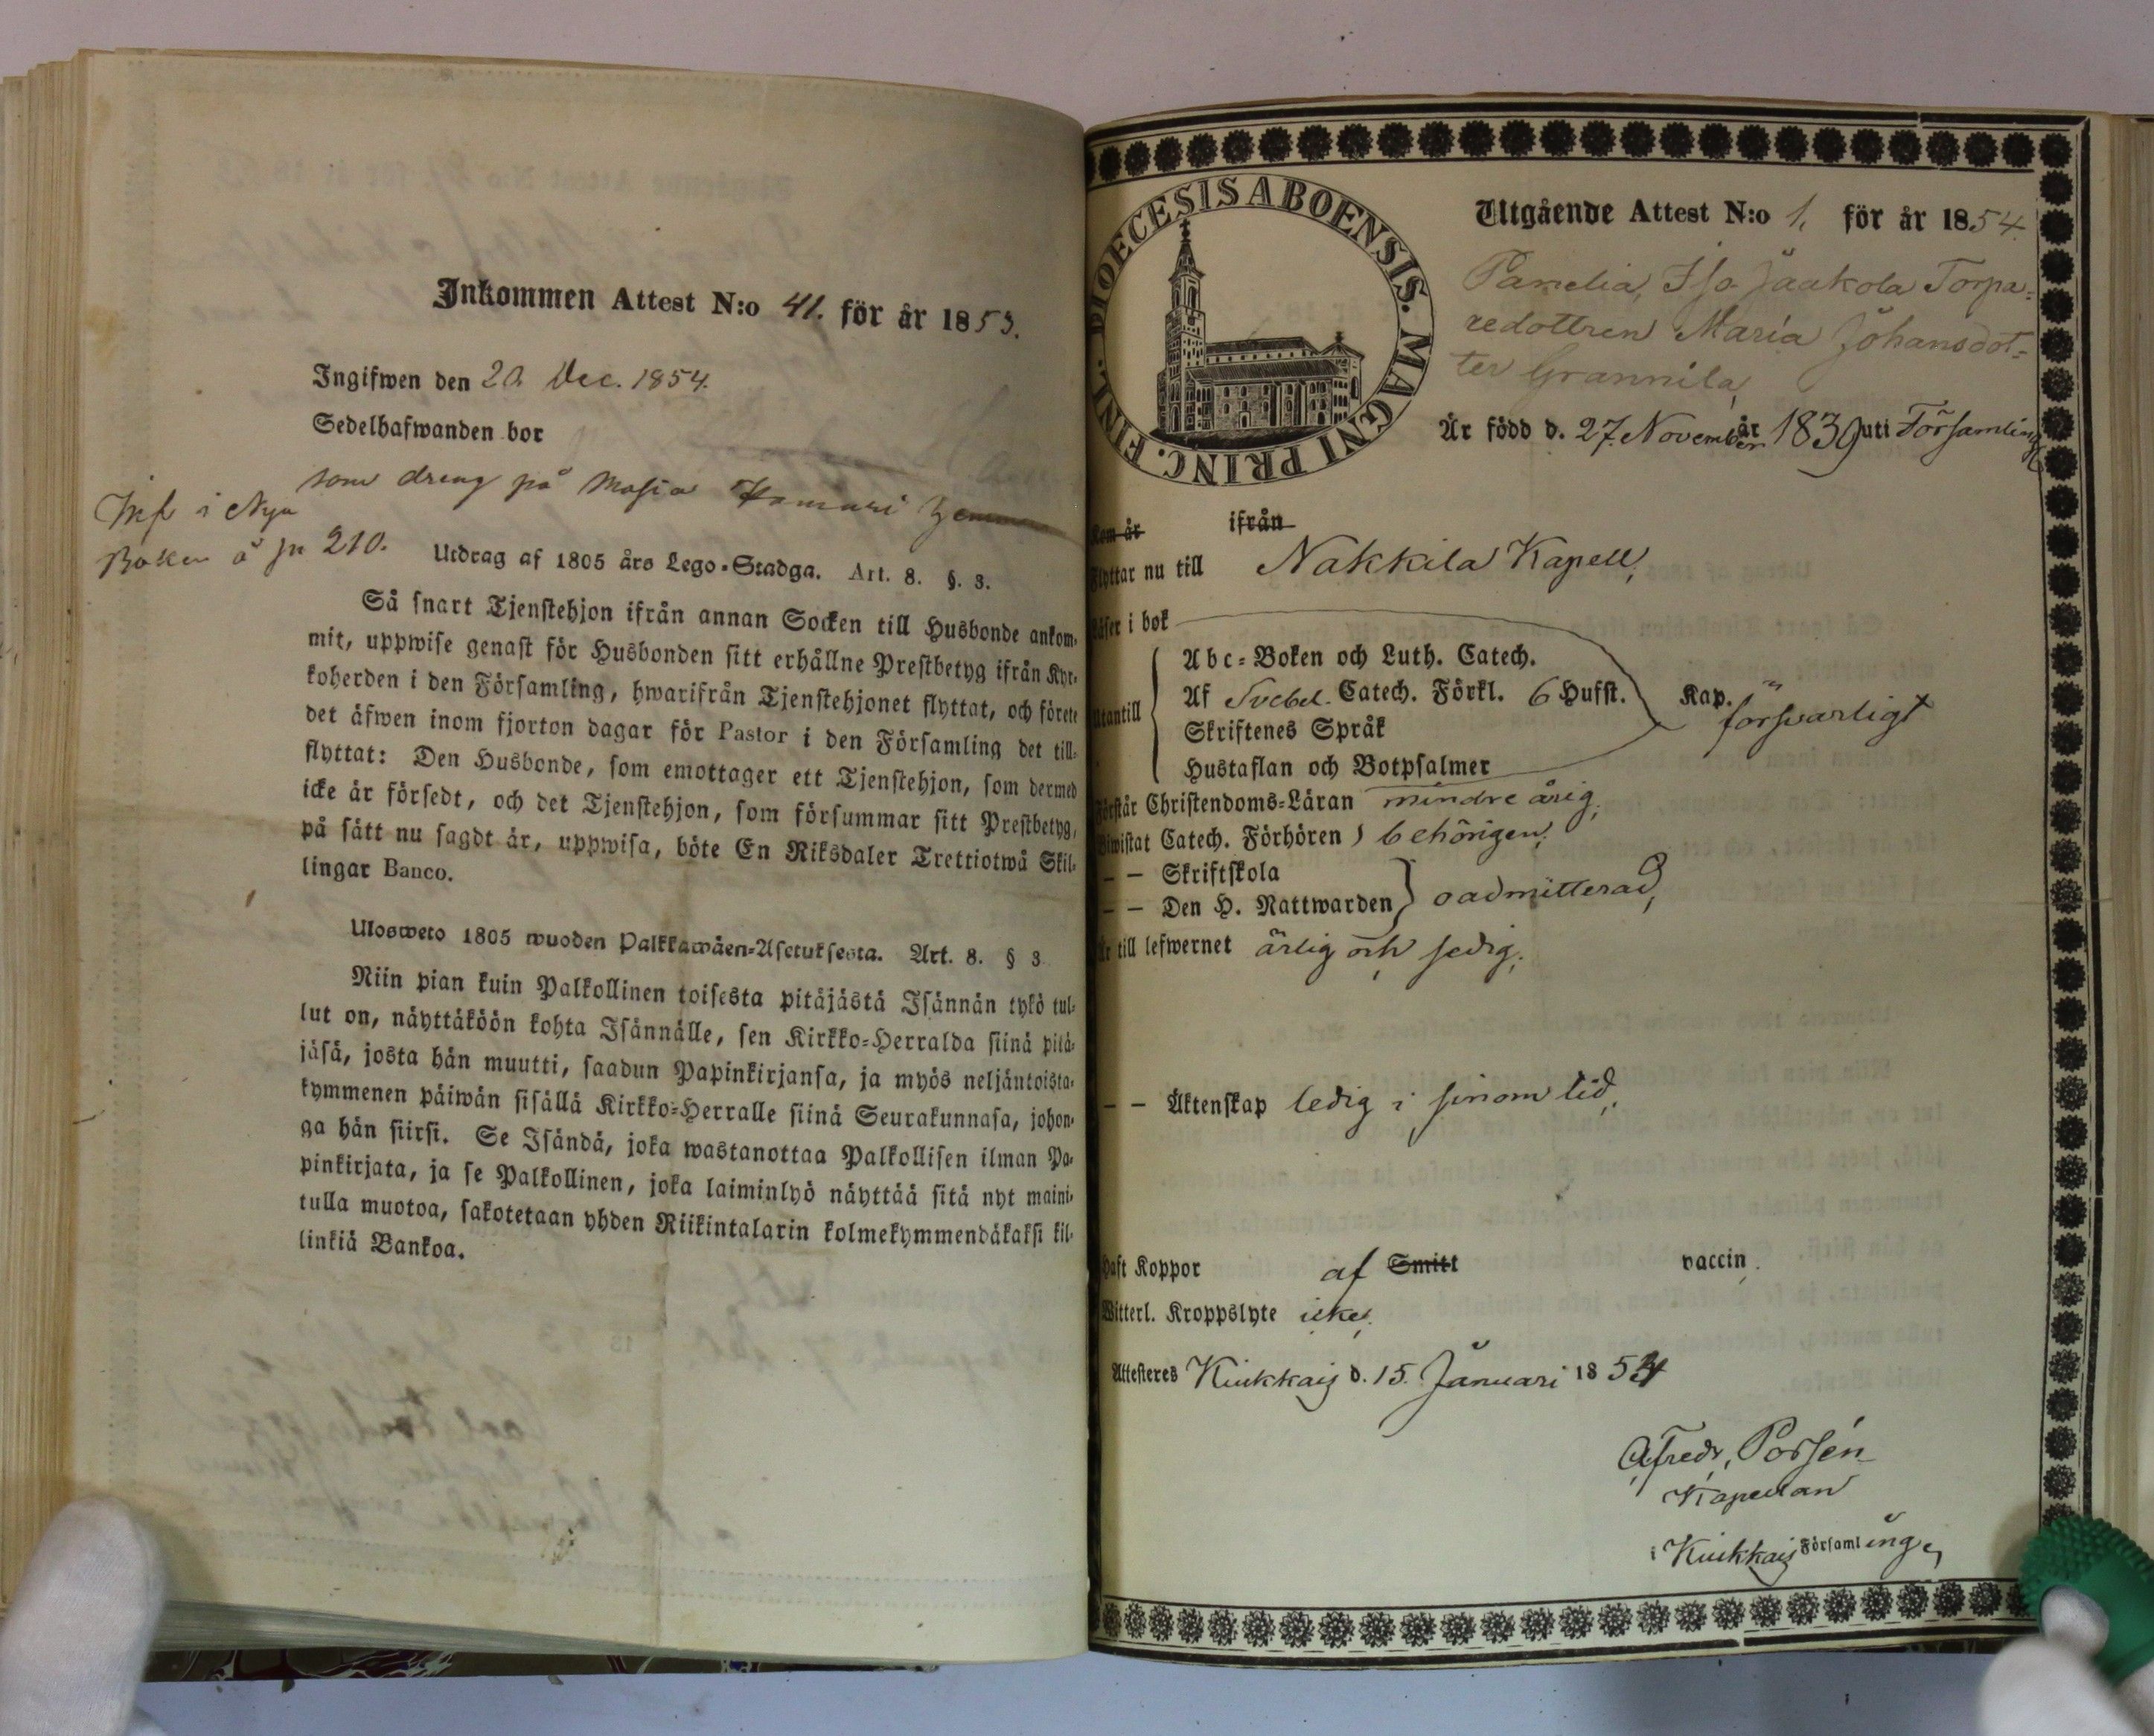 Inkommen Attest N:o 41. för år 1853.
Ingifwen den 20. Dec. 1854.
Sedelhafwanden bor
som dreng på
Inf i Nya
Boken å pa 210.
Utdrag af 1805 års Lego-Stadga. Art. 8. §. 3.
Så snart Tjenstehjon ifrån annan Socken till Husbonde ankom-
mit, uppwise genast för Husbonden sitt erhållne Prestbetyg ifrån Kyr-
koherden i den Församling, hwarifrån Tjenstehjonet flyttat, och förete
det äfwen inom fjorton dagar för Pastor i den Församling det till-
flyttat: Den Husbonde, som emottager ett Tjenstehjon, som dermed
icke är försedt, och det Tjenstehjon, som försummar sitt Prestbetyg,
på sätt nu sagdt är, uppwisa, böte En Riksdaler Trettiotwå Skil-
lingar Banco.
Uloswето 1805 wuoden Palkkawäen-Asetuksesta. Art. 8. § 3
Niin pian kuin Palkollinen toisesta pitäjästä Isännän tykö tul-
lut on, näyttäköön kohta Isännälle, sen Kirkko-Herralda siinä pitä-
jäsä, josta hän muutti, saadun Papinkirjansa, ja myös neljäntoista-
kymmenen päiwän sisällä Kirkko-Herralle siinä Seurakunnasa, johon-
ga hän siirsi. Se Isändä, joka wastanottaa Palkollisen ilman Pa-
pinkirjata, ja se Palkollinen, joka laiminlyö näyttää sitä nyt maini-
tulla muotoa, sakotetaan yhden Riikintalarin kolmekymmendäkaksi kil-
linkiä Bankoa.
DIOECESIS ABOENSIS. MAGNI PRINC. FINL.
Utgående Attest N:o 1. för år 1854.
Panelia, Iso Jaakola Torpa-
redottren Maria Johansdot-
ter Grannila,
Är född d. 27. November år 1839 uti Församling
Kom år ifrån
Flyttar nu till Nakkila Kapell,
Läser i bok
Abc-Boken och Luth. Catech.
Utantill Af Svebel. Catech. Förkl. 6 Hufst. Kap. försvarligt
Skriftenes Språk
Hustaflan och Botpsalmer
Förstår Christendoms-Läran mindre årig,
Biwistat Catech. Förhören behörigen,
— — Skriftskola
— — Den H. Nattwarden oadmitterad,
Är till lefwernet ärlig och sedig,
— — Äktenskap ledig i sinom tid,
Haft Koppor af Smitt vaccin
Witterl. Kroppslyte icke,
Attesteres Kiukkais d. 15. Januari 1854
Alfredr. Porsén
Kapellan
i Kiukkais Församlinge